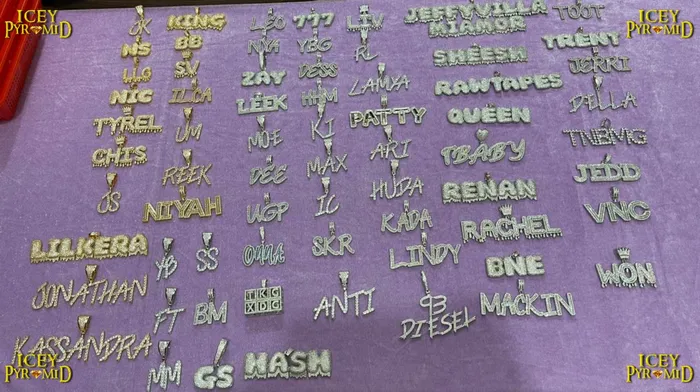 ICEY
PYRAMID
ICEY
PYRAMID
JK
KING
LEO
777
LIV
JEFFYVILLA
MIAMOR
TOOT
NS
BB
NYA
YBG
RL
SHEESH
TRENT
LLG
SV
ZAY
DESS
JERRI
NIC
ILCA
LEEK
HHM
LAMYA
RAWTAPES
DELLA
TYREL
UM
MOE
KI
PATTY
QUEEN
TNBMG
CHIS
REEK
DEE
MAX
ARI
TBABY
JEDD
JS
NIYAH
WGP
IC
HUDA
RENAN
VNC
KADA
RACHEL
LILKERA
YB
SS
SKR
LINDY
BNE
WON
JONATHAN
FT
BM
TKG
XDC
ANTI
93
DIESEL
MACKIN
KASSANDRA
MM
GS
MA'SH
ICEY
PYRAMID
ICEY
PYRAMID